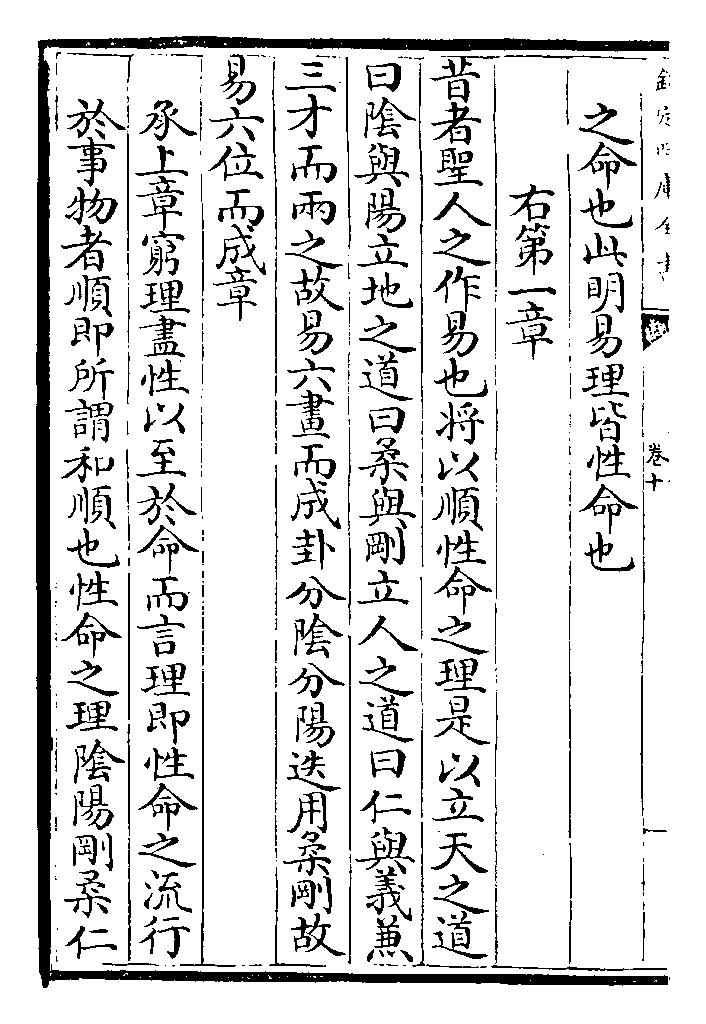 欽定四庫全書
卷十
之命也此明易理皆性命也
右第一章
昔者聖人之作易也将以順性命之理是以立天之道
曰陰與陽立地之道曰柔與剛立人之道曰仁與義兼
三才而兩之故易六畫而成卦分陰分陽迭用柔剛故
易六位而成章
承上章窮理盡性以至於命而言理即性命之流行
於事物者順即所謂和順也性命之理陰陽剛柔仁